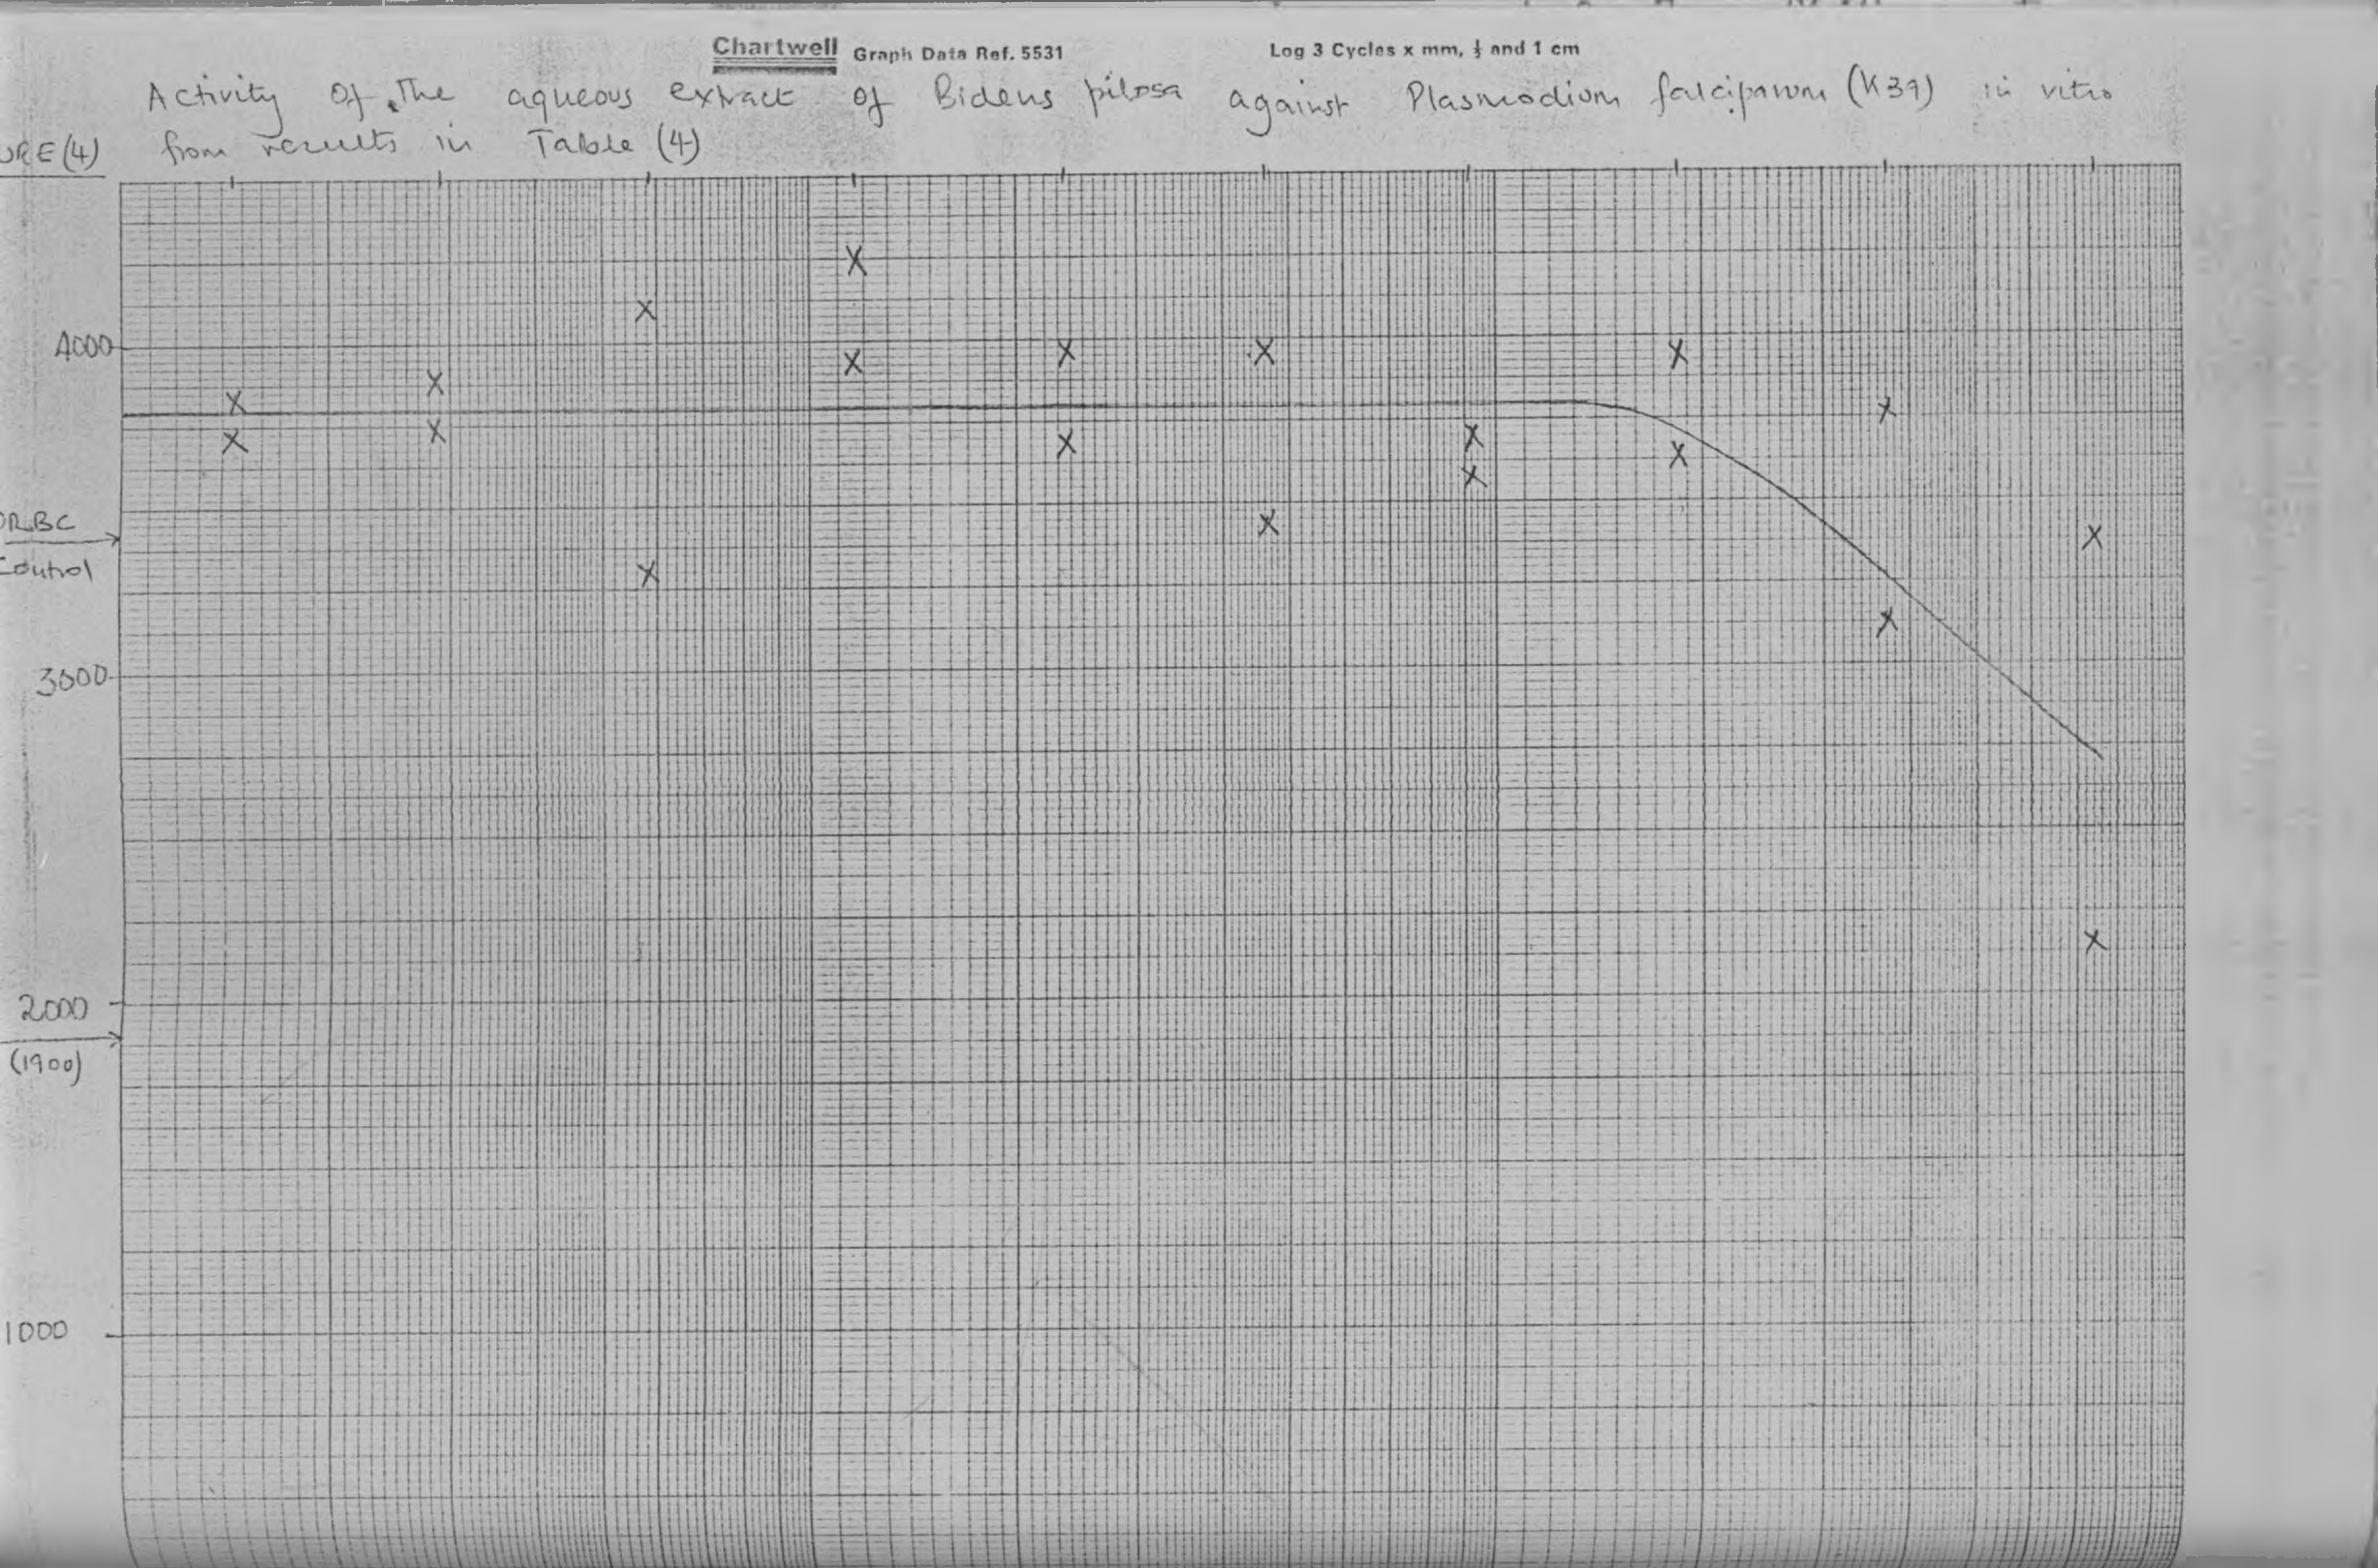 Chartwell Graph Data Ref. 5531 Log 3 Cycles x mm, ½ and 1 cm
Activity of the aqueous extract of Bidens pilosa against Plasmodium falciparum (K39) in vitro
URE (4) from results in Table (4)
4000
RBC
Control
3000
2000
(1900)
1000